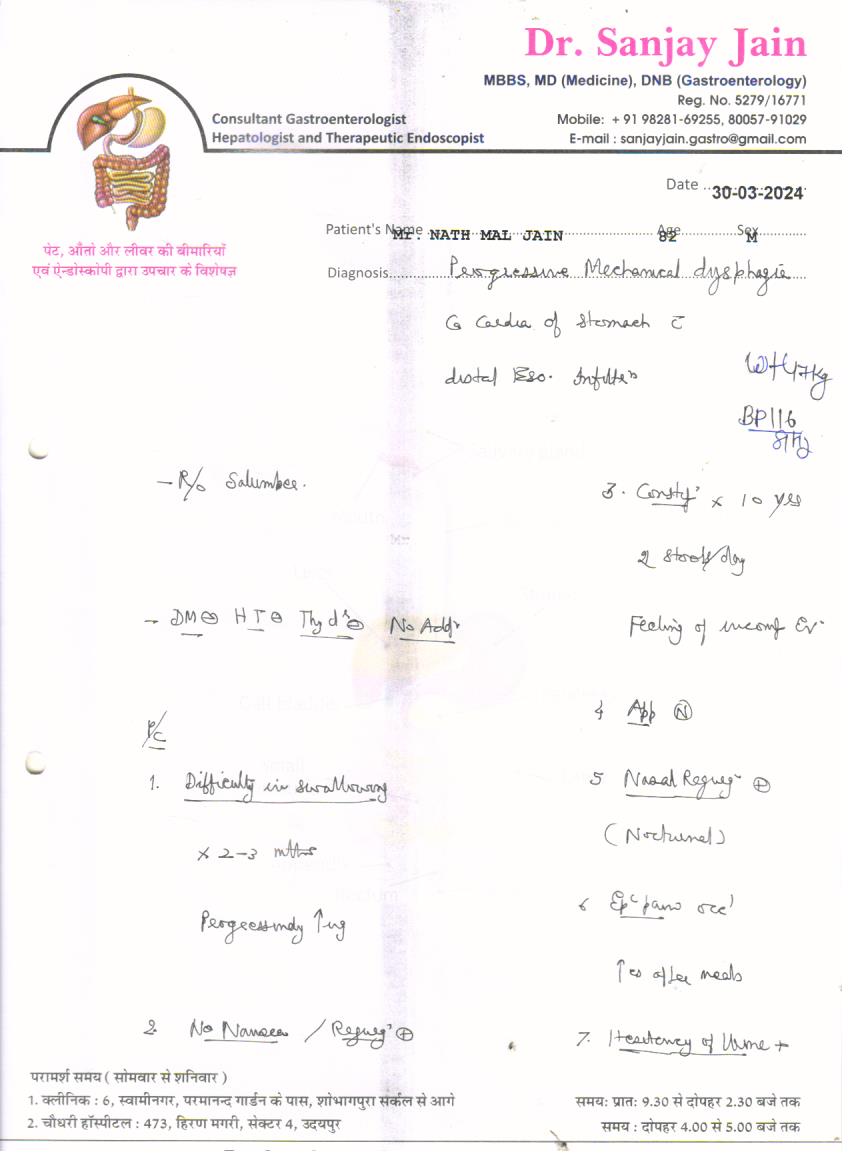 Dr. Sanjay Jain
MBBS, MD (Medicine), DNB (Gastroenterology)
Reg. No. 5279/16771
Consultant Gastroenterologist
Mobile: + 91 98281-69255, 80057-91029
Hepatologist and Therapeutic Endoscopist
E-mail : sanjayjain.gastro@gmail.com
Date 30-03-2024
Patient's Name Mr. NATH MAL JAIN Age 82 Sex M
पेट, आँतों और लीवर की बीमारियाँ
एवं ऐन्डोस्कोपी द्वारा उपचार के विशेषज्ञ
Diagnosis Progressive Mechanical dysphagia
Ca Cardia of Stomach c̄
distal Eso. Infiltrn
Wt 47kg
BP 116
- R/o Salumber.
3. Constipn x 10 yrs
2 stools/day
- DM ⊖ HT ⊖ Thyd ⊖ No Addn
Feeling of incomp Ev.
4 App Ⓝ
P/C
1. Difficulty in swallowing
5 Nasal Regurg ⊕
x 2-3 mths
(Nocturnal)
Progressively ↑ing
6 Epi pain occ
↑es after meals
2. No Nausea / Regurg ⊕
7. Hesitency of Urine +
परामर्श समय ( सोमवार से शनिवार )
1. क्लीनिक : 6, स्वामीनगर, परमानन्द गार्डन के पास, शोभागपुरा सर्कल से आगे
समय: प्रात: 9.30 से दोपहर 2.30 बजे तक
2. चौधरी हॉस्पीटल : 473, हिरण मगरी, सेक्टर 4, उदयपुर
समय : दोपहर 4.00 से 5.00 बजे तक